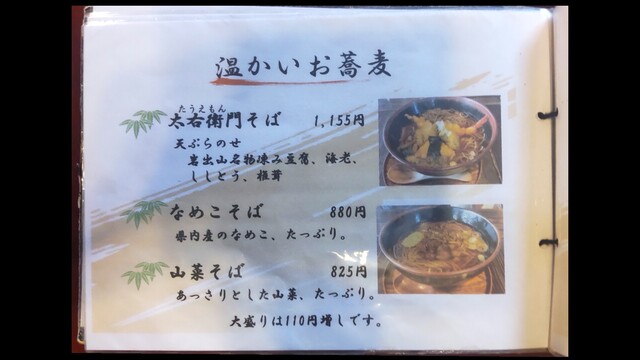 温かいお蕎麦
たうえもん
太右衛門そば 1,155円
天ぷらのせ
岩出山名物凍み豆腐、海老、
ししとう、椎茸
なめこそば 880円
県内産のなめこ、たっぷり。
山菜そば 825円
あっさりとした山菜、たっぷり。
大盛りは110円増しです。